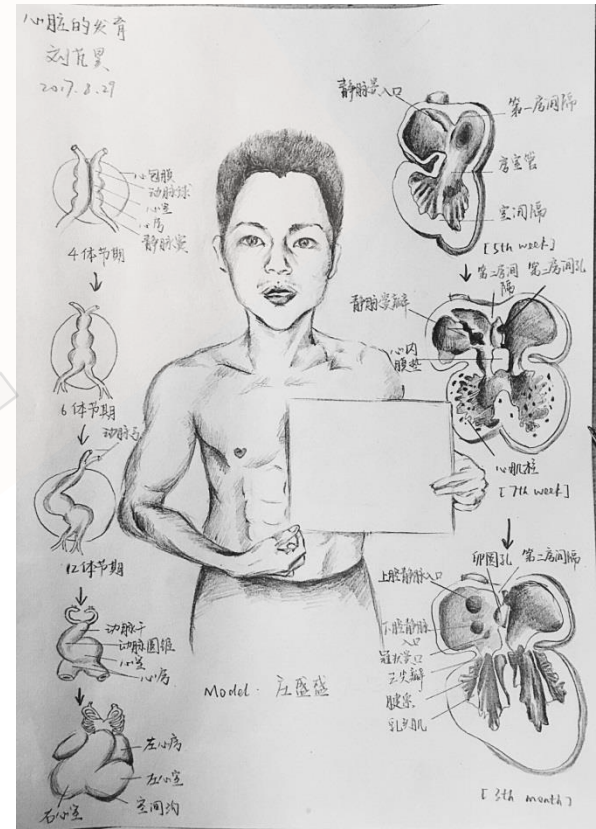 心脏的发育
2017.8.29
心包膜
动脉球
心室
心房
静脉窦
4体节期
6体节期
动脉弓
12体节期
动脉干
动脉圆锥
心室
心房
左心房
左心室
室间沟
右心室
Model. 庄盛盛
静脉窦入口
第一房间隔
房室管
室间隔
[5th week]
第二房间隔
第二房间孔
静脉窦瓣
心内膜垫
心肌柱
[7th week]
卵圆孔
第二房间隔
上腔静脉入口
下腔静脉
入口
冠状窦口
三尖瓣
腱索
乳头肌
[3th month]